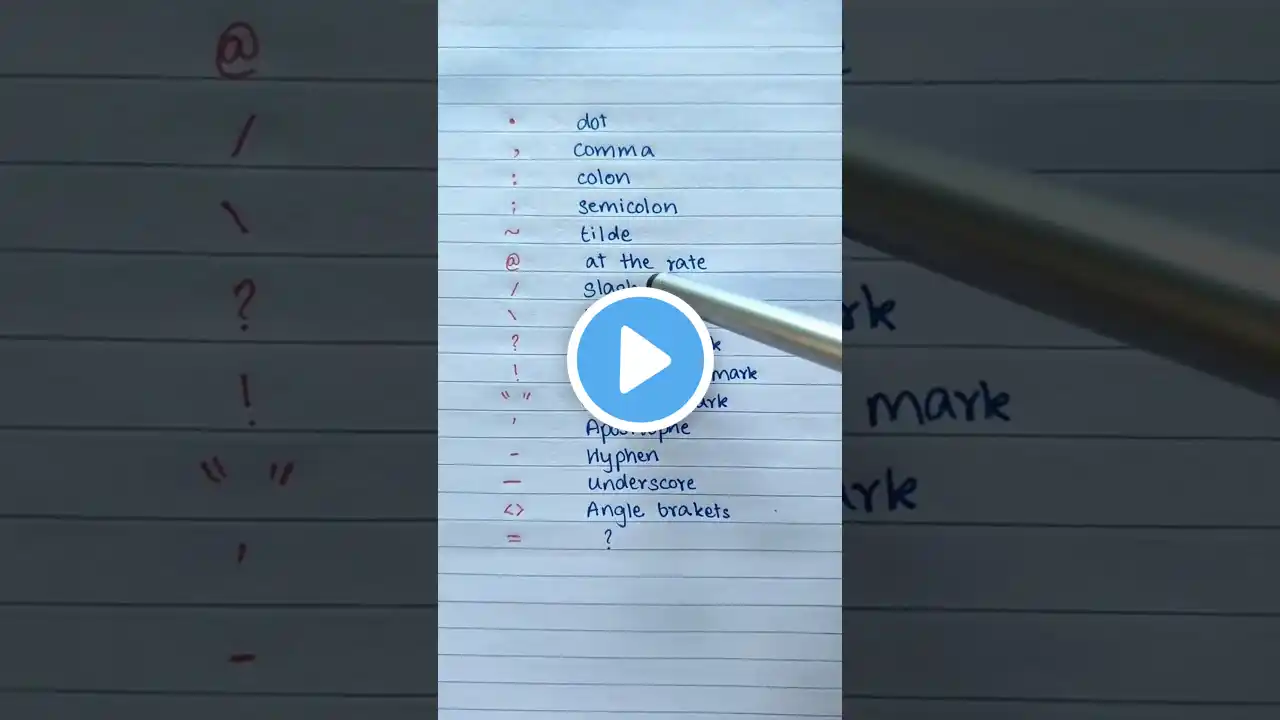 . dot
, comma
: colon
; semicolon
~ tilde
@ at the rate
/ slash
\
?
! mark
" "
' Apostrophe
- Hyphen
_ underscore
<> Angle brakets
= ?